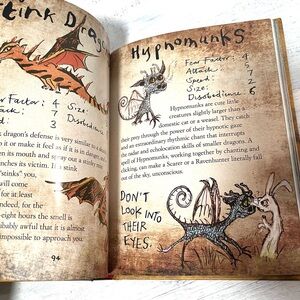 tink Drag
Factor: 4 Size:
tack: 3 Disobedience:
dragon's defense is very similar to
it or make it feel as if it is in danger, and
en its mouth and spray out a
It's stink
"stinks" you,
will come
for at least
ended, for the
eight hours the smell is
bably awful that it is almost
impossible to approach you.
94
Hypnomunks
Fear Factor: 4
Attack: 5
Speed: 7
Size: 2
Disobedience: 6
Hypnomunks are cute little
creatures slightly larger than a
domestic cat or a weasel. They catch
their prey through the power of their hypnotic gaze
and an extraordinary rhythmic chant that interrupts
the radar and echolocation skills of smaller dragons. A
spell of Hypnomunks, working together, and chanting and
clicking, can make a Scarer or a Ravenhunter literally fall
out of the sky, unconscious.
DON'T
LOOK INTO
THEIR
EYES.